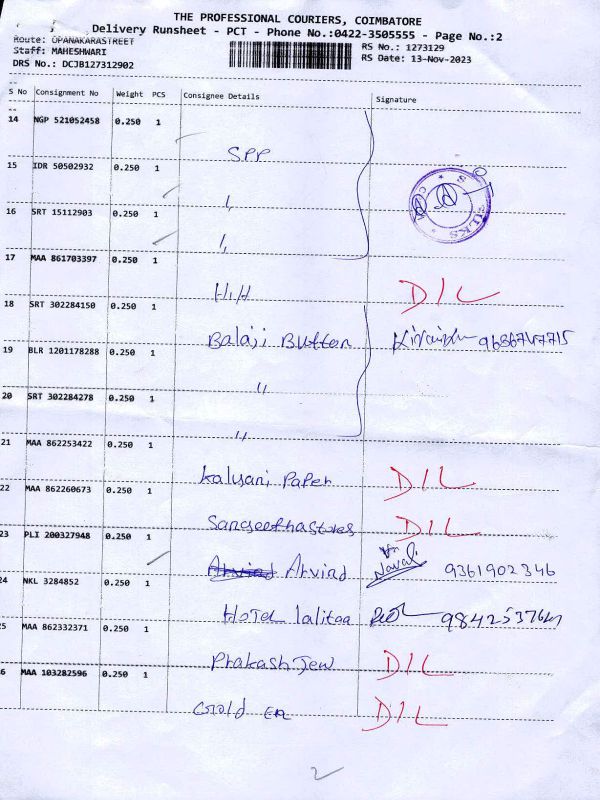 THE PROFESSIONAL COURIERS, COIMBATORE
Delivery Runsheet - PCT - Phone No.:0422-3505555 - Page No.:2
Route: OPANAKARASTREET
Staff: MAHESHWARI
DRS No.: DCJB127312902
RS No.: 1273129
RS Date: 13-Nov-2023
S No Consignment No Weight PCS Consignee Details Signature
14 NGP 521052458 0.250 1
SPP
15 IDR 50502932 0.250 1
"
16 SRT 15112903 0.250 1
"
17 MAA 861703397 0.250 1
H.H D/L
18 SRT 302284150 0.250 1
Balaji Button 9686747715
19 BLR 1201178288 0.250 1
"
20 SRT 302284278 0.250 1
"
21 MAA 862253422 0.250 1
Kalyani Paper D/L
22 MAA 862260673 0.250 1
Sangeetha Stores D/L
23 PLI 200327948 0.250 1
Arvind Arvind Naval 9361902346
24 NKL 3284852 0.250 1
Hotel lalitaa
25 MAA 862332371 0.250 1
Prakash Jew D/L
26 MAA 103282596 0.250 1
Gold en D/L
2